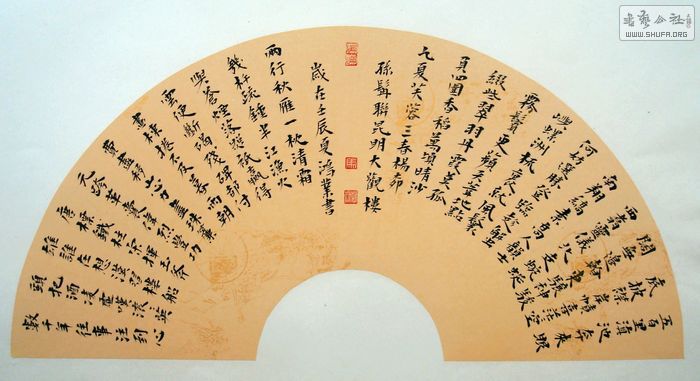 五百里滇池奔來眼
底披襟岸幘喜茫茫空
闊無邊看東驤神駿
西翥靈儀北走蜿蜒
南翔縞素高人韻士
何妨選勝登臨趁蟹
嶼螺洲梳裹就風鬟
霧鬢更蘋天葦地點
綴些翠羽丹霞莫孤
負四圍香稻萬頃晴沙
九夏芙蓉三春楊柳
孫髯聯昆明大觀樓
數千年往事注到心
頭把酒凌虛嘆滾滾英
雄誰在想漢習樓船
唐標鐵柱宋揮玉斧
元跨革囊偉烈豐功
費盡移山心力盡珠簾
畫棟捲不及暮雨朝
雲便斷碣殘碑都付
與蒼煙落照衹贏得
幾杵疏鐘半江漁火
兩行秋雁一枕清霜
歲在壬辰夏鴻業書
書藝公社
WWW.SHUFA.ORG